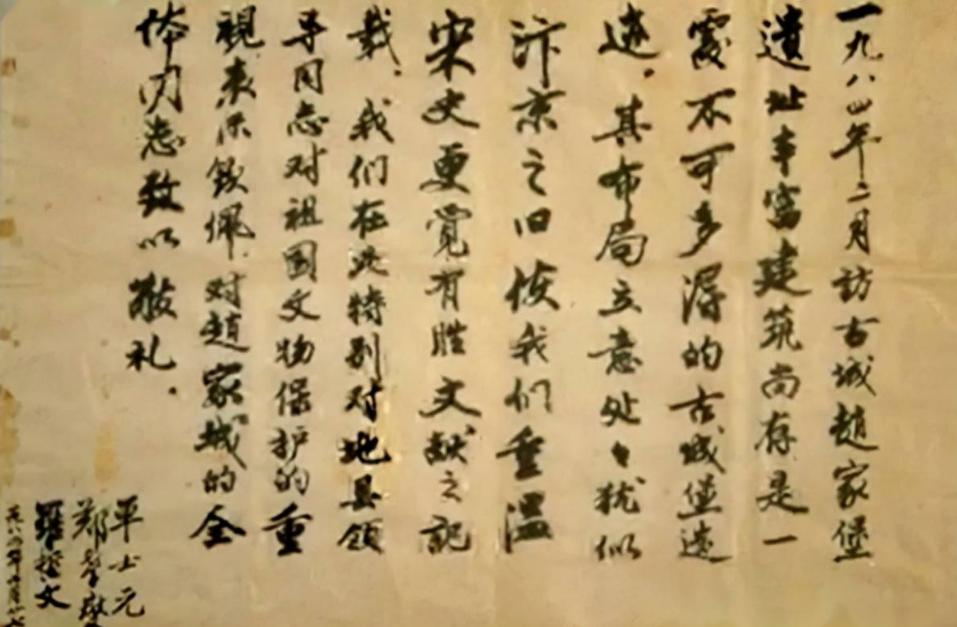 一九八四年二月訪古城趙家堡
遺址丰富建筑尚存是一
處不可多得的古城堡遗
迹。其布局立意处々犹似
汴京之旧使我们重温
宋史更覺有胜文献之記
载。我们在此特别对地县领
导同志对祖国文物保护的重
視表示欽佩，对趙家城的全
体同志致以敬礼。
单士元
郑孝燮
羅哲文